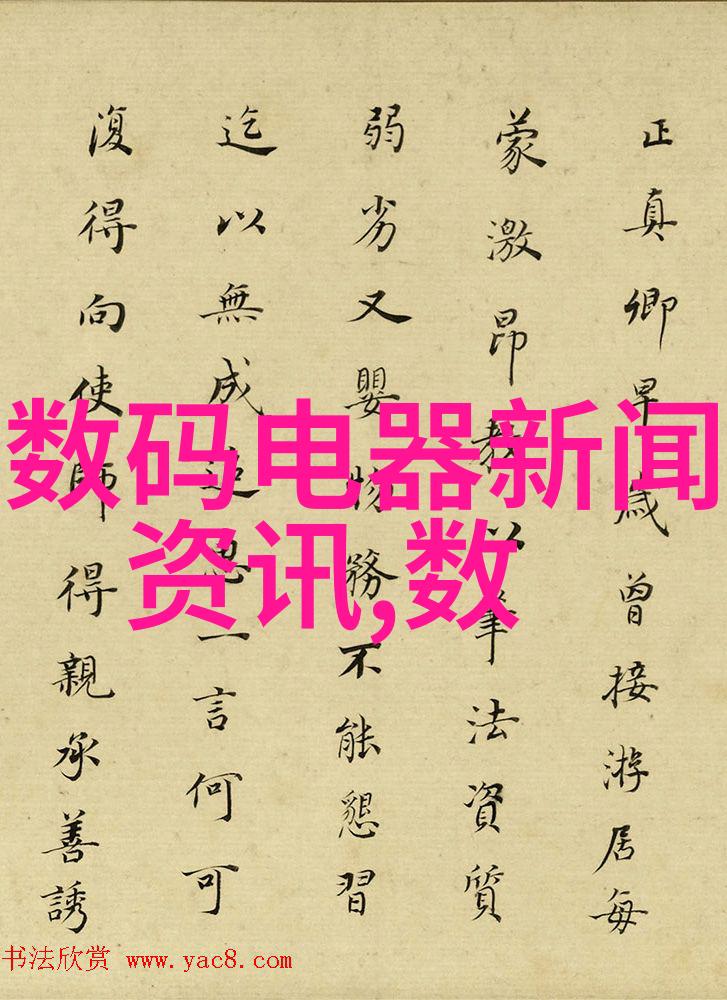 正真卿早歲曾接游居每
蒙激昂教以筆法資質
弱劣又嬰物務不能懇習
迄以無成追思一言何可
復得向使師得親承善誘
数码电器新闻
资讯,数
书法欣赏 www.yac8.com